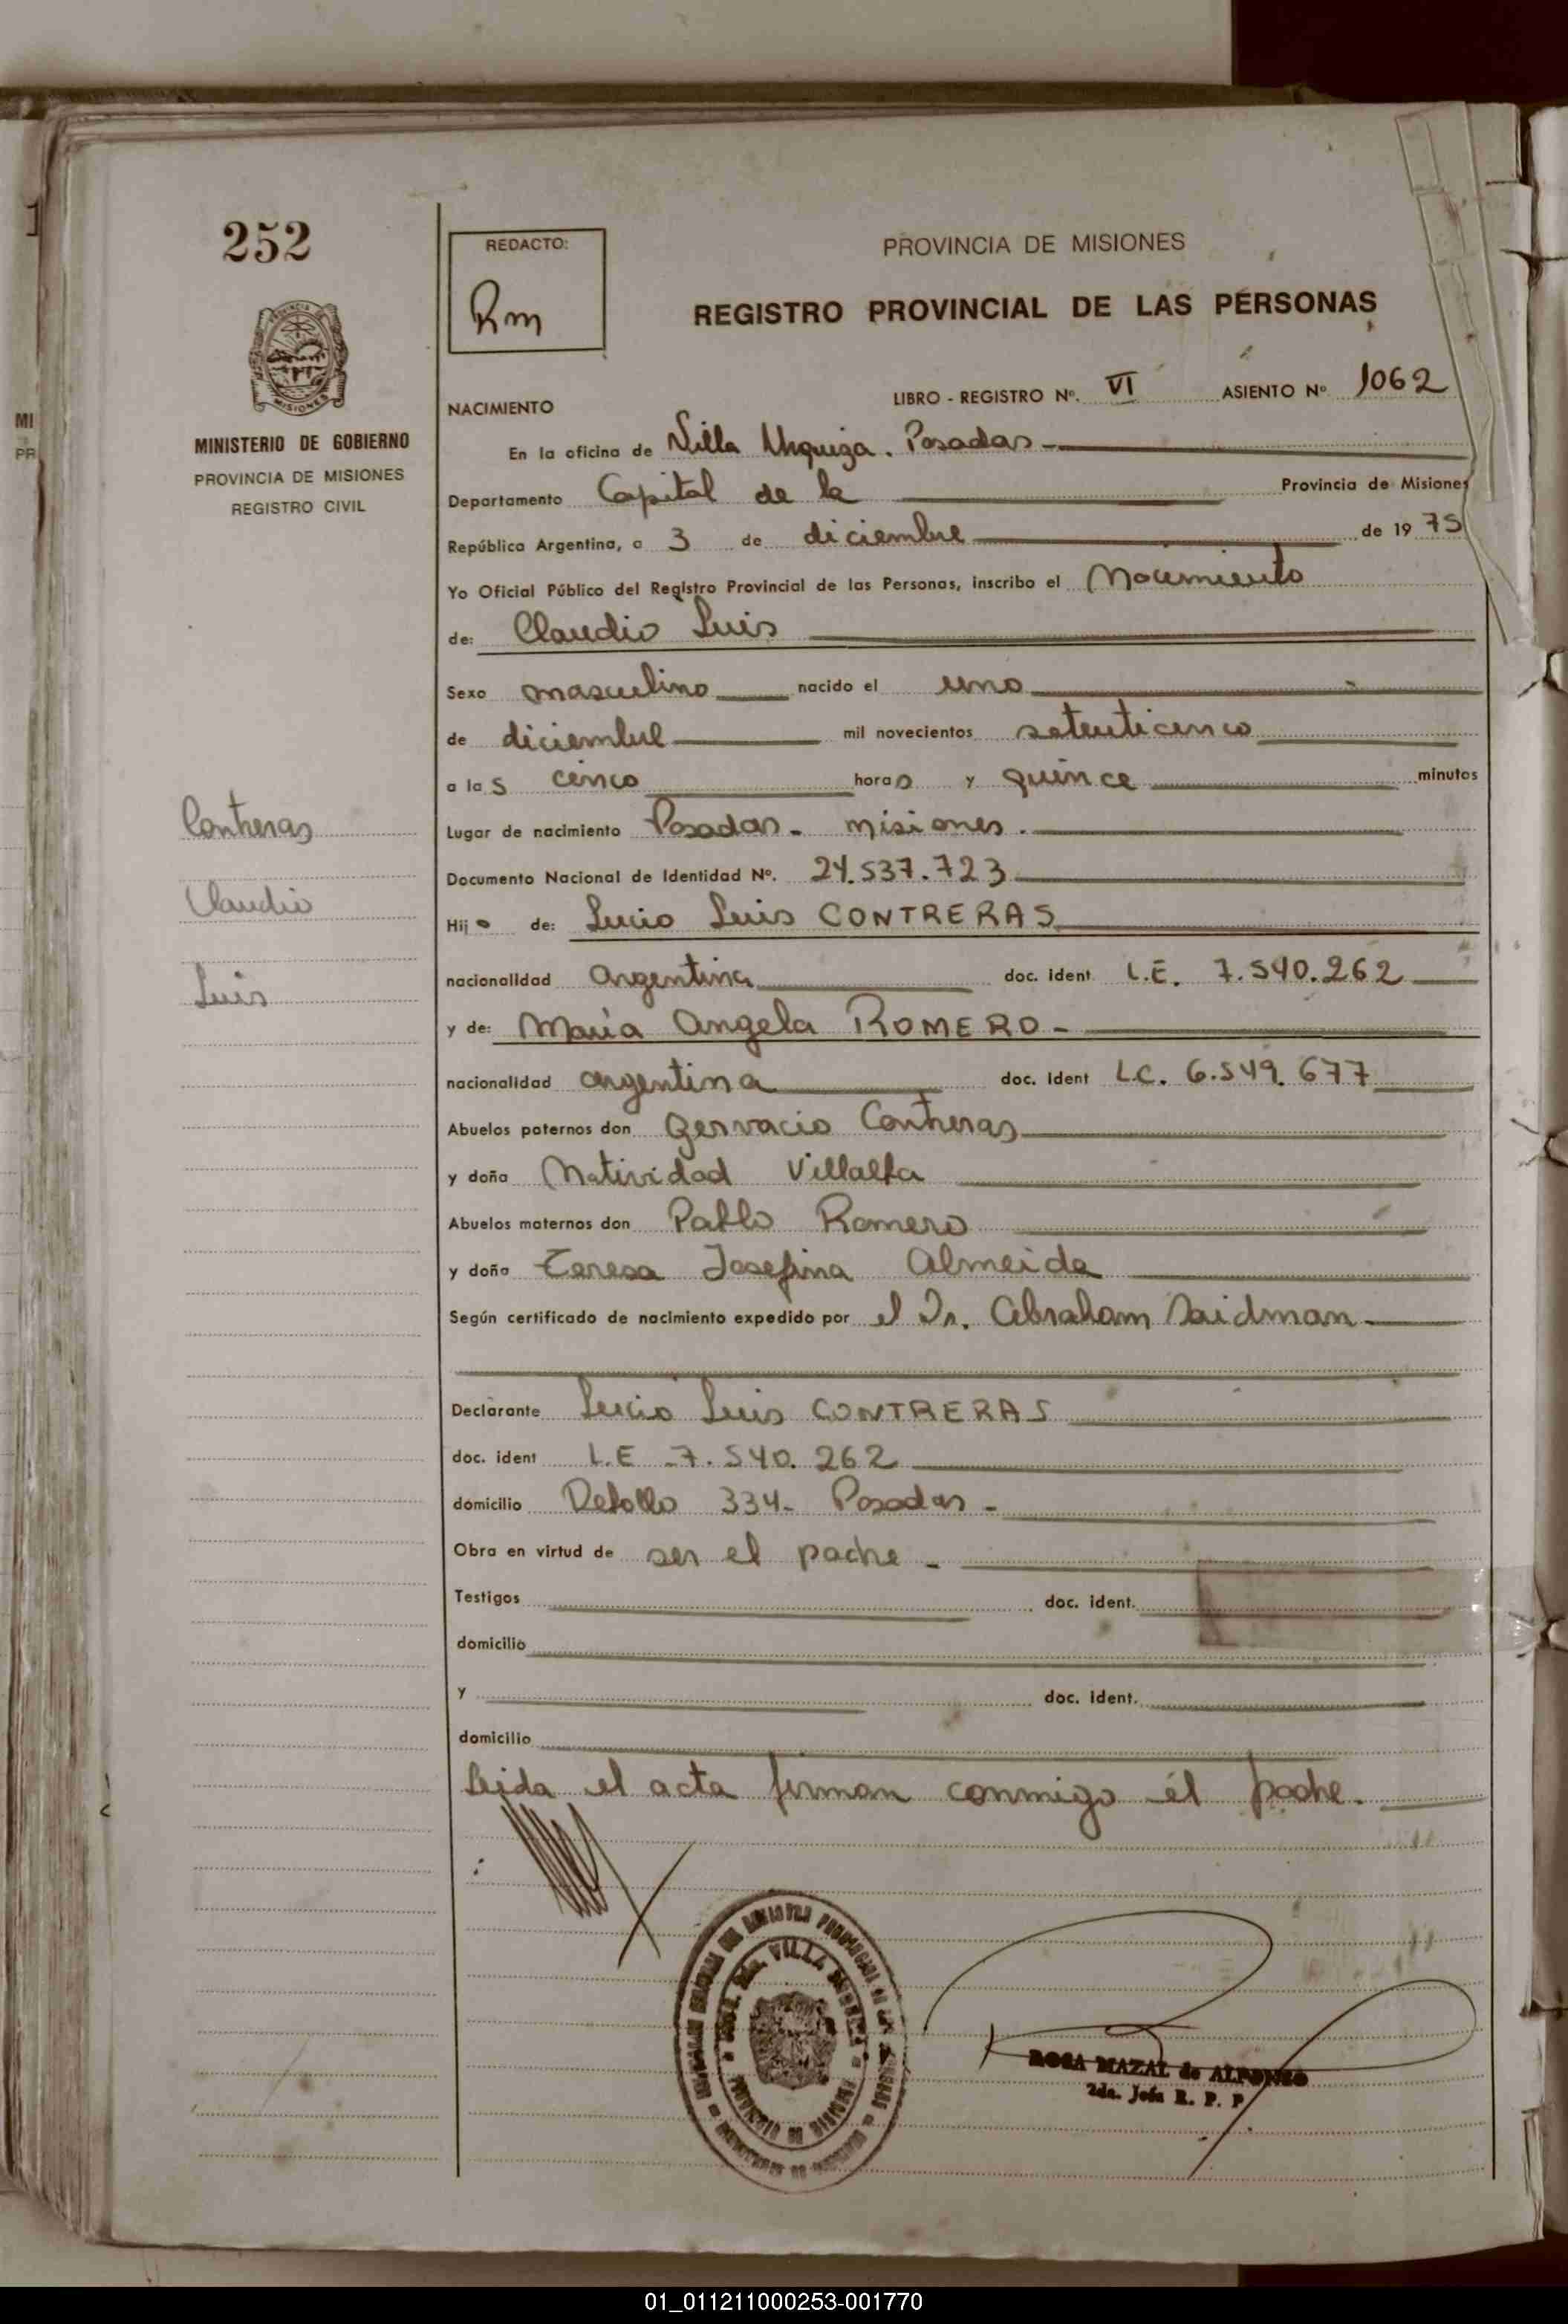 252
REDACTO:
Rm
PROVINCIA DE MISIONES
REGISTRO PROVINCIAL DE LAS PERSONAS
MINISTERIO DE GOBIERNO
PROVINCIA DE MISIONES
REGISTRO CIVIL
LIBRO - REGISTRO Nº. VI ASIENTO Nº 1062
NACIMIENTO
En la oficina de Villa Urquiza. Posadas
Departamento Capital de la Provincia de Misiones
República Argentina, a 3 de diciembre de 1975
Yo Oficial Público del Registro Provincial de las Personas, inscribo el Nacimiento
de: Claudio Luis
Sexo masculino nacido el uno
de diciembre mil novecientos setenticinco
a las cinco horas y quince minutos
Contreras
Lugar de nacimiento Posadas - misiones.
Documento Nacional de Identidad Nº. 24.537.723
Claudio
Hijo de: Lucio Luis CONTRERAS
Luis
nacionalidad argentina doc. ident L.E. 7.540.262
y de: María Angela ROMERO -
nacionalidad argentina doc. ident L.C. 6.549.677
Abuelos paternos don Gervacio Contreras
y doña Natividad Villalba
Abuelos maternos don Pablo Romero
y doña Teresa Josefina Almeida
Según certificado de nacimiento expedido por el Dr. Abraham Saidman
Declarante Lucio Luis CONTRERAS
doc. ident L.E - 7.540.262
domicilio 334 - Posadas -
Obra en virtud de ser el padre -
Testigos doc. ident.
domicilio
y doc. ident.
domicilio
Leida el acta firman conmigo él padre.
ROSA MAZAL de ALFONSO
2da. Jefa R. P. P
01_011211000253-001770